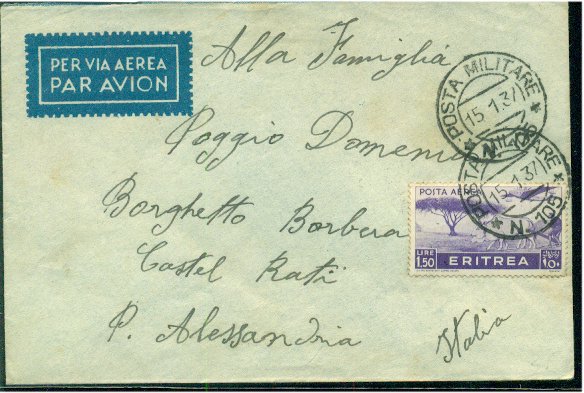 PER VIA AEREA
PAR AVION
Alla Famiglia
POSTA MILITARE
15.1.37
Poggio Domenico
POSTA MILITARE
15.1.37
N. 105
POSTA AEREA
Borghetto Borbera
LIRE
1.50
ERITREA
١٥٠
Castel Rati
P. Alessandria
Italia